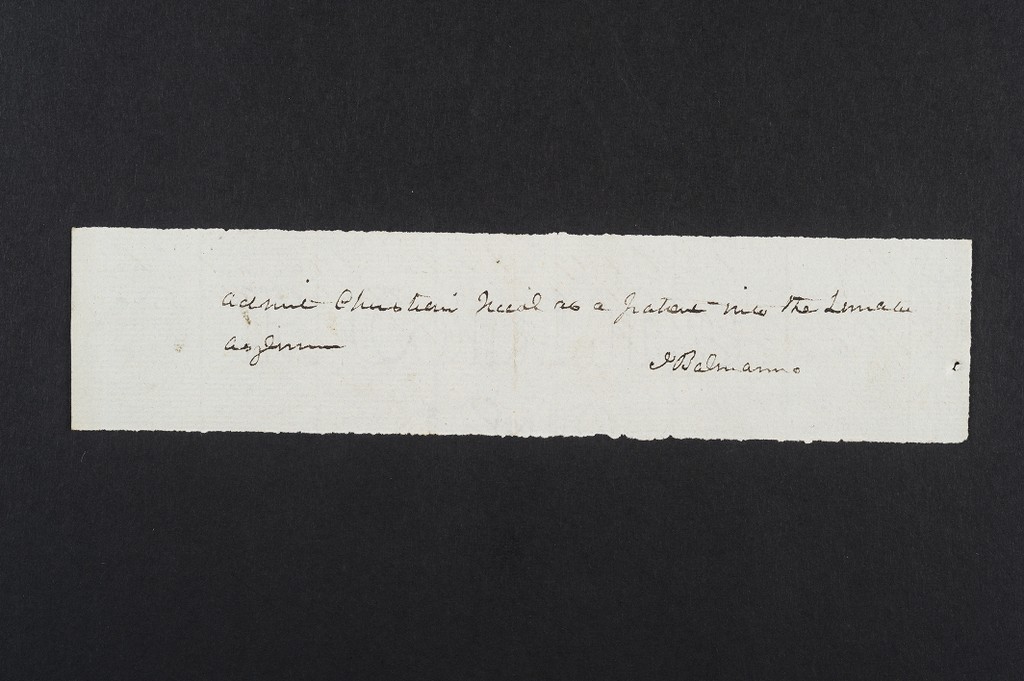 Admit Christian Neil as a patient into the Lunatic
Asylum
J Balmanno